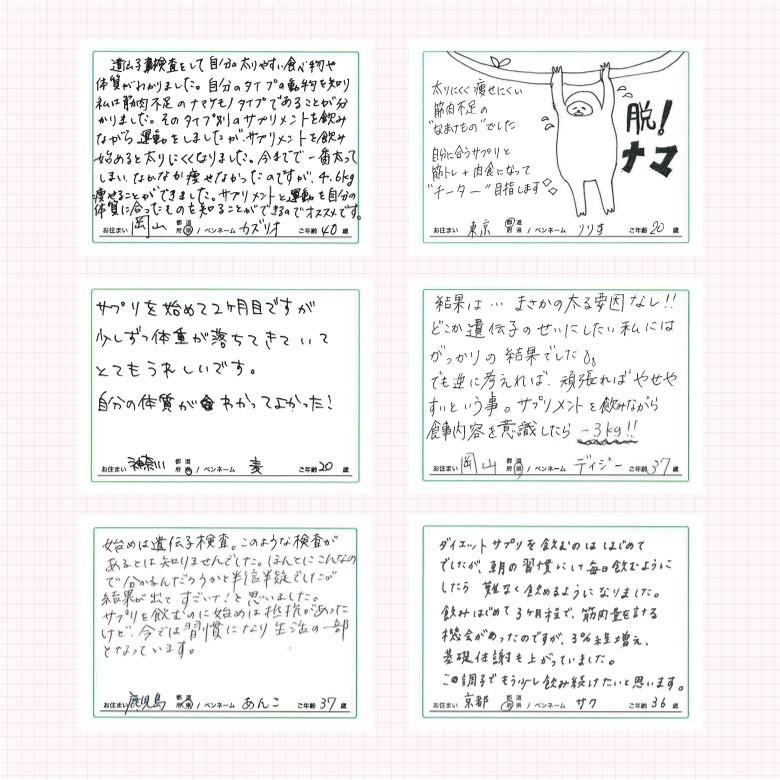 遺伝子検査をして自分の太りやすい食べ物や
体質がわかりました。自分のタイプの動物を知り
私は筋肉不足のナマケモノタイプであることが分
かりました。そのタイプ別のサプリメントを飲み
ながら運動をしましたが、サプリメントを飲み
始めると太りにくくなりました。今までで一番太って
しまいなかなか痩せなかったのですが、4.6kg
痩せることができました。サプリメントと運動を自分の
体質に合ったものを知ることができるのでオススメです。
お住まい 岡山 都道府県 / ペンネーム カズリオ ご年齢 40 歳
太りにくく痩せにくい
筋肉不足の
"なまけもの"でした
自分に合うサプリと
筋トレ+肉食になって
"チーター"目指します
脱!
ナマ
お住まい 東京 都道府県 / ペンネーム りりす ご年齢 20 歳
サプリを始めて2ヶ月目ですが
少しずつ体重が落ちてきていて
とてもうれしいです。
自分の体質がわかってよかった!
お住まい 神奈川 都道府県 / ペンネーム 麦 ご年齢 20 歳
結果は…まさかの太る要因なし!!
どこか遺伝子のせいにしたい私には
がっかりの結果でした
でも逆に考えれば、頑張ればやせや
すいという事。サプリメントを飲みながら
食事内容を意識したら -3kg!!
お住まい 岡山 都道府県 / ペンネーム ディジー ご年齢 37 歳
始めは遺伝子検査。このような検査が
あるとは知りませんでした。ほんとにこんなの
で分かるんだろうかと半信半疑でしたが
結果が出てすごい!と思いました。
サプリを飲むのに始めは抵抗があった
けど、今では習慣になり生活の一部
となっています。
お住まい 鹿児島 都道府県 / ペンネーム あんこ ご年齢 37 歳
ダイエットサプリを飲むのははじめて
でしたが、朝の習慣にして毎日飲むように
したら 難なく飲めるようになりました。
飲みはじめて3ヶ月程で、筋肉量を計る
機会があったのですが、3%程増え、
基礎代謝も上がっていました。
この調子でもう少し飲み続けたいと思います。
お住まい 京都 都道府県 / ペンネーム サク ご年齢 36 歳